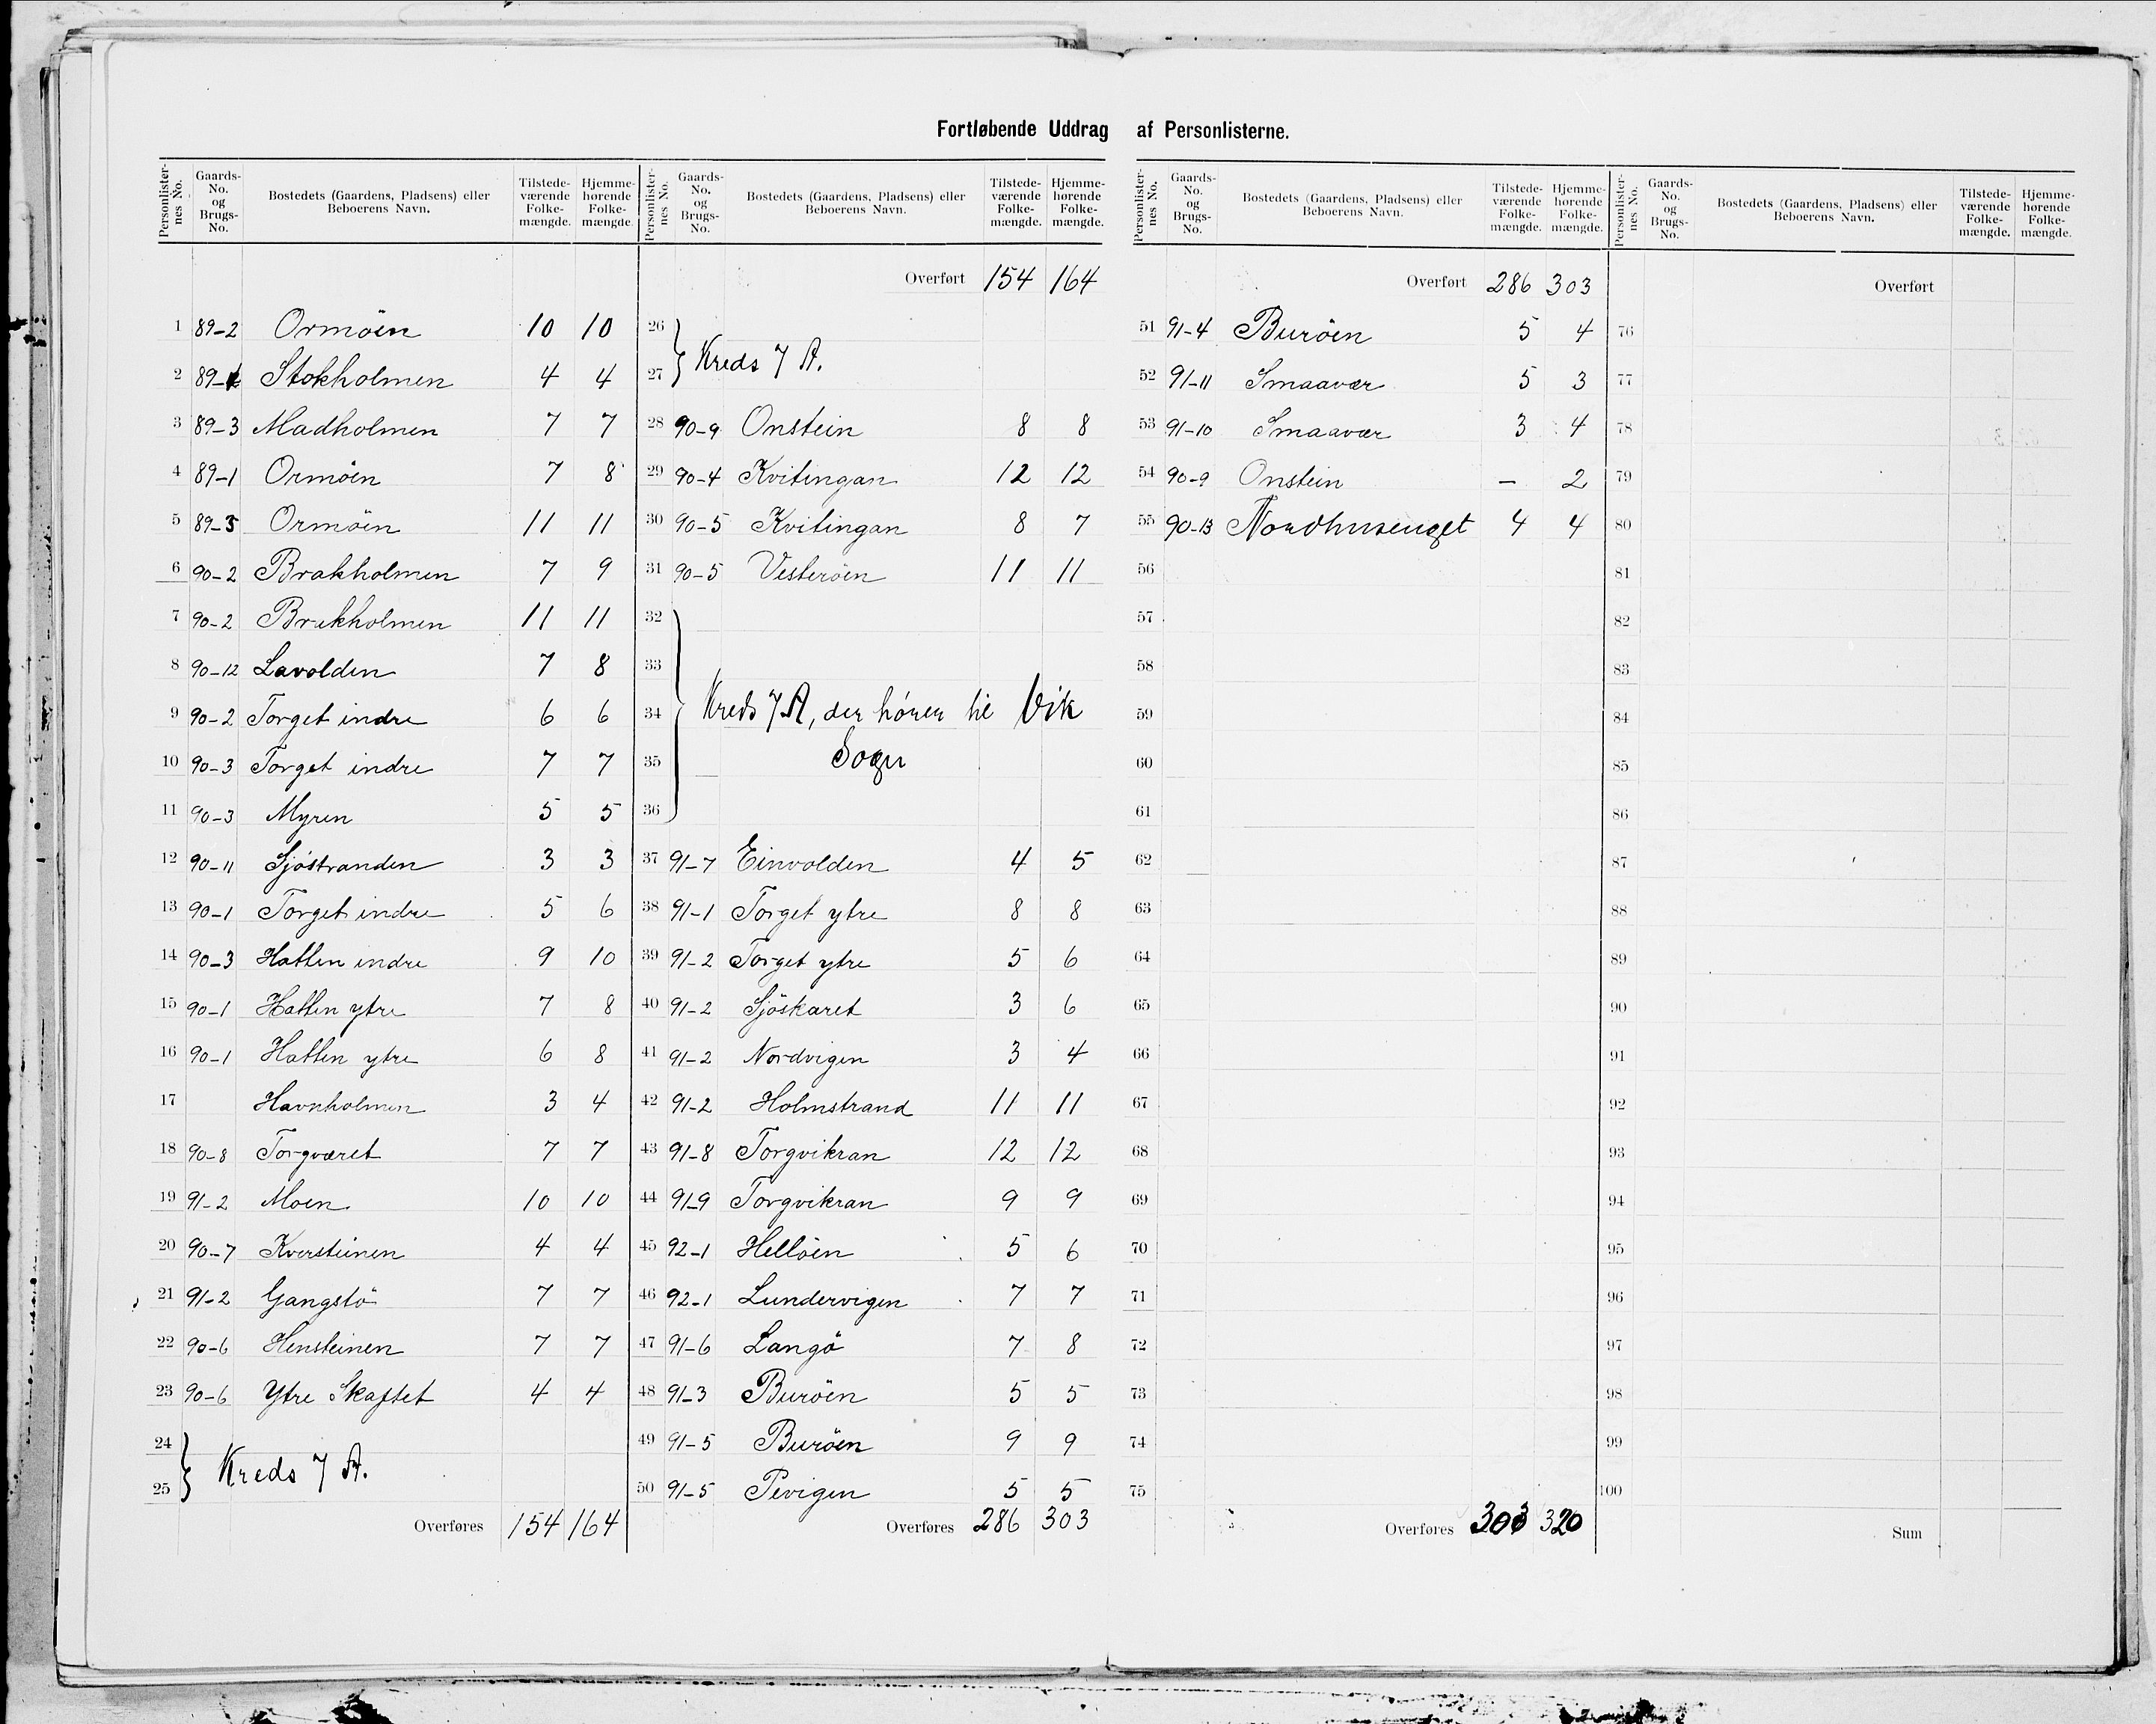 Fortløbende Uddrag af Personlisterne.
Personlisternes No. Gaards-No. og Brugs-No. Bostedets (Gaardens, Pladsens) eller Beboerens Navn. Tilstedeværende Folkemængde. Hjemmehørende Folkemængde.
1 89-2 Ormöen 10 10
2 89- Stokholmen 4 4
3 89-3 Madholmen 7 7
4 89-1 Ormöen 7 8
5 89-3 Ormöen 11 11
6 90-2 Brakholmen 7 9
7 90-2 Brakholmen 11 11
8 90-12 Lavolden 7 8
9 90-2 Torget indre 6 6
10 90-3 Torget indre 7 7
11 90-3 Myren 5 5
12 90-11 Sjöstranden 3 3
13 90-1 Torget indre 5 6
14 90-3 Hatten indre 9 10
15 90-1 Hatten ytre 7 8
16 90-1 Hatten ytre 6 8
17 Havnholmen 3 4
18 90-8 Torgværet 7 7
19 91-2 Moen 10 10
20 90-7 Kversteinen 4 4
21 91-2 Gangstö 7 7
22 90-6 Hensteinen 7 7
23 90-6 Ytre Skaftet 4 4
24
25 } Kreds 7 A.
Overføres 154 164
Personlisternes No. Gaards-No. og Brugs-No. Bostedets (Gaardens, Pladsens) eller Beboerens Navn. Tilstedeværende Folkemængde. Hjemmehørende Folkemængde.
Overført 154 164
26
27 } Kreds 7 A.
28 90-9 Onstein 8 8
29 90-4 Kvitingan 12 12
30 90-5 Kvitingan 8 7
31 90-5 Vesteröen 11 11
32
33
34 } Kreds 7 A, der hörer til Vik
35 Sogn
36
37 91-7 Einvolden 4 5
38 91-1 Torget ytre 8 8
39 91-2 Torget ytre 5 6
40 91-2 Sjöskaret 3 6
41 91-2 Nordvigen 3 4
42 91-2 Holmstrand 11 11
43 91-8 Torgvikran 12 12
44 91-9 Torgvikran 9 9
45 92-1 Hellöen 5 6
46 92-1 Lundervigen 7 7
47 91-6 Langö 7 8
48 91-3 Buröen 5 5
49 91-5 Buröen 9 9
50 91-5 Pevigen 5 5
Overføres 286 303
Personlisternes No. Gaards-No. og Brugs-No. Bostedets (Gaardens, Pladsens) eller Beboerens Navn. Tilstedeværende Folkemængde. Hjemmehørende Folkemængde.
Overført 286 303
51 91-4 Buröen 5 4
52 91-11 Smaavær 5 3
53 91-10 Smaavær 3 4
54 90-9 Onstein – 2
55 90-13 Nordhusenget 4 4
56
57
58
59
60
61
62
63
64
65
66
67
68
69
70
71
72
73
74
75
Overføres 303 320
Personlisternes No. Gaards-No. og Brugs-No. Bostedets (Gaardens, Pladsens) eller Beboerens Navn. Tilstedeværende Folkemængde. Hjemmehørende Folkemængde.
Overført
76
77
78
79
80
81
82
83
84
85
86
87
88
89
90
91
92
93
94
95
96
97
98
99
100
Sum